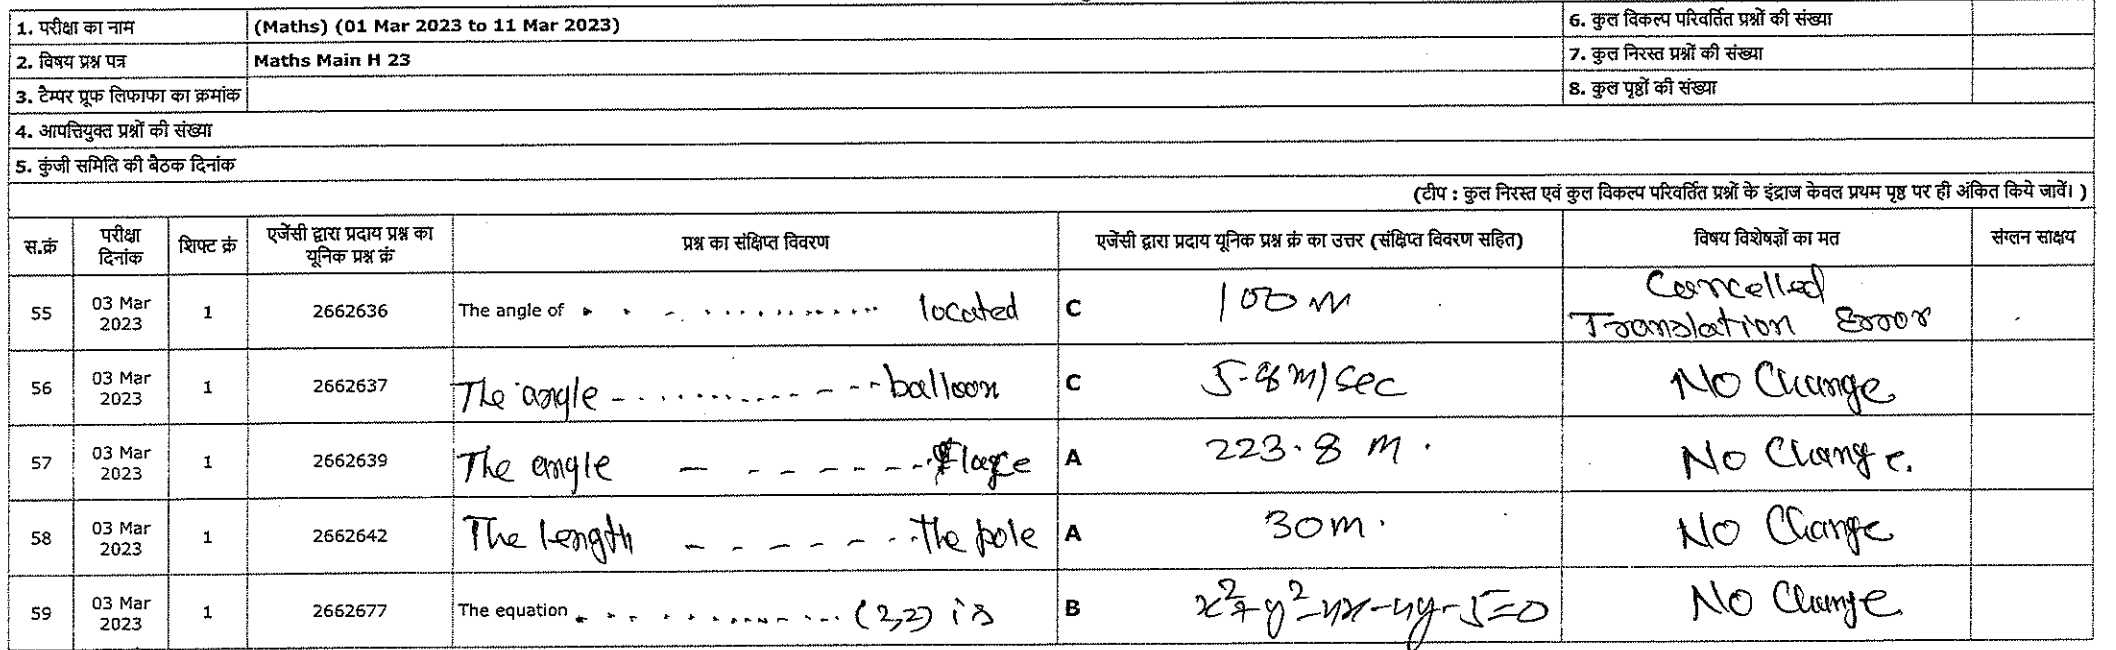 1. परीक्षा का नाम (Maths) (01 Mar 2023 to 11 Mar 2023) 6. कुल विकल्प परिवर्तित प्रश्नों की संख्या
2. विषय प्रश्न पत्र Maths Main H 23 7. कुल निरस्त प्रश्नों की संख्या
3. टैम्पर प्रूफ लिफाफा का क्रमांक 8. कुल पृष्ठों की संख्या
4. आपत्तियुक्त प्रश्नों की संख्या
5. कुंजी समिति की बैठक दिनांक
(टीप : कुल निरस्त एवं कुल विकल्प परिवर्तित प्रश्नों के इंद्राज केवल प्रथम पृष्ठ पर ही अंकित किये जावें। )
स.क्रं परीक्षा दिनांक शिफ्ट क्रं एजेंसी द्वारा प्रदाय प्रश्न का यूनिक प्रश्न क्रं प्रश्न का संक्षिप्त विवरण एजेंसी द्वारा प्रदाय यूनिक प्रश्न क्रं का उत्तर (संक्षिप्त विवरण सहित) विषय विशेषज्ञों का मत संग्लन साक्षय
55 03 Mar 2023 1 2662636 The angle of ............... located C 100 m Cancelled Translation Error
56 03 Mar 2023 1 2662637 The angle ............... balloon C 5.8 m/sec No Change
57 03 Mar 2023 1 2662639 The angle - - - - - - - A 223.8 m. No Change.
58 03 Mar 2023 1 2662642 The length - - - - - - - the pole A 30m. No Change
59 03 Mar 2023 1 2662677 The equation ............... (2,2) is B x²+y²-4x-4y-5=0 No Change